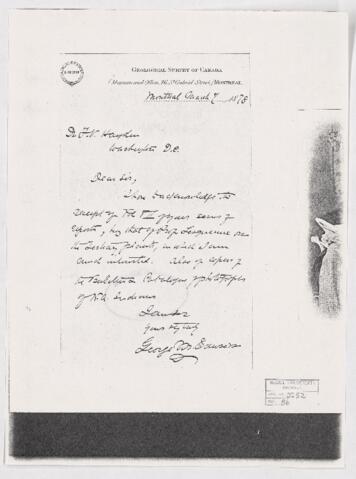 GEOLOGICAL SURVEY OF CANADA
Museum and Office, 76, St Gabriel Street, MONTREAL
Montreal March 1878
Dr F. V. Hayden
Washington D.C.
Dear Sir,
I beg to acknowledge the
receipt of Vol VII of your series of
reports, being that of Prof Lesquereux on
the Tertiary plants, in which I am
much interested. Also of copies of
the Bulletin & Catalogue of photographs
of N.A. Indians
Yours very truly
George M. Dawson